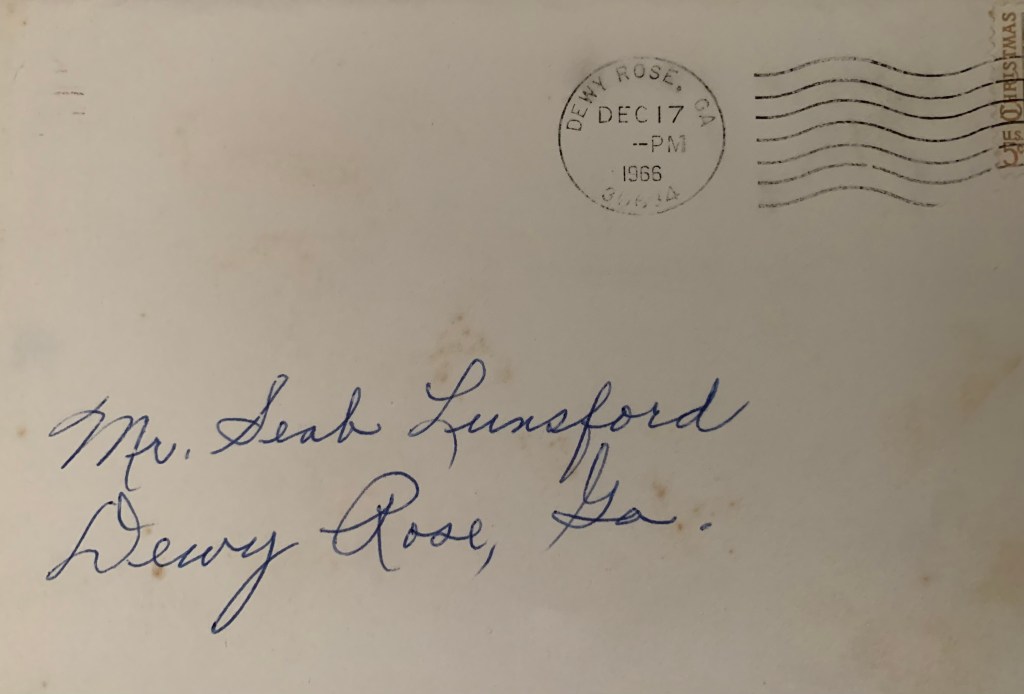 DEWY ROSE, GA
DEC 17
--PM
1966
CHRISTMAS
U.S.
5c
Mr. Seab Lunsford
Dewy Rose, Ga.